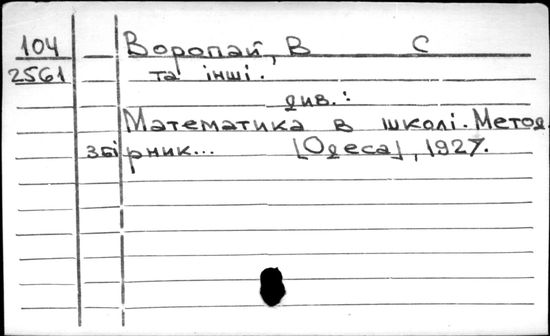 104 Воропай, В С
2561 та інші.
див.:
Математика в школі. Метод.
збірник... [Одеса], 1927.